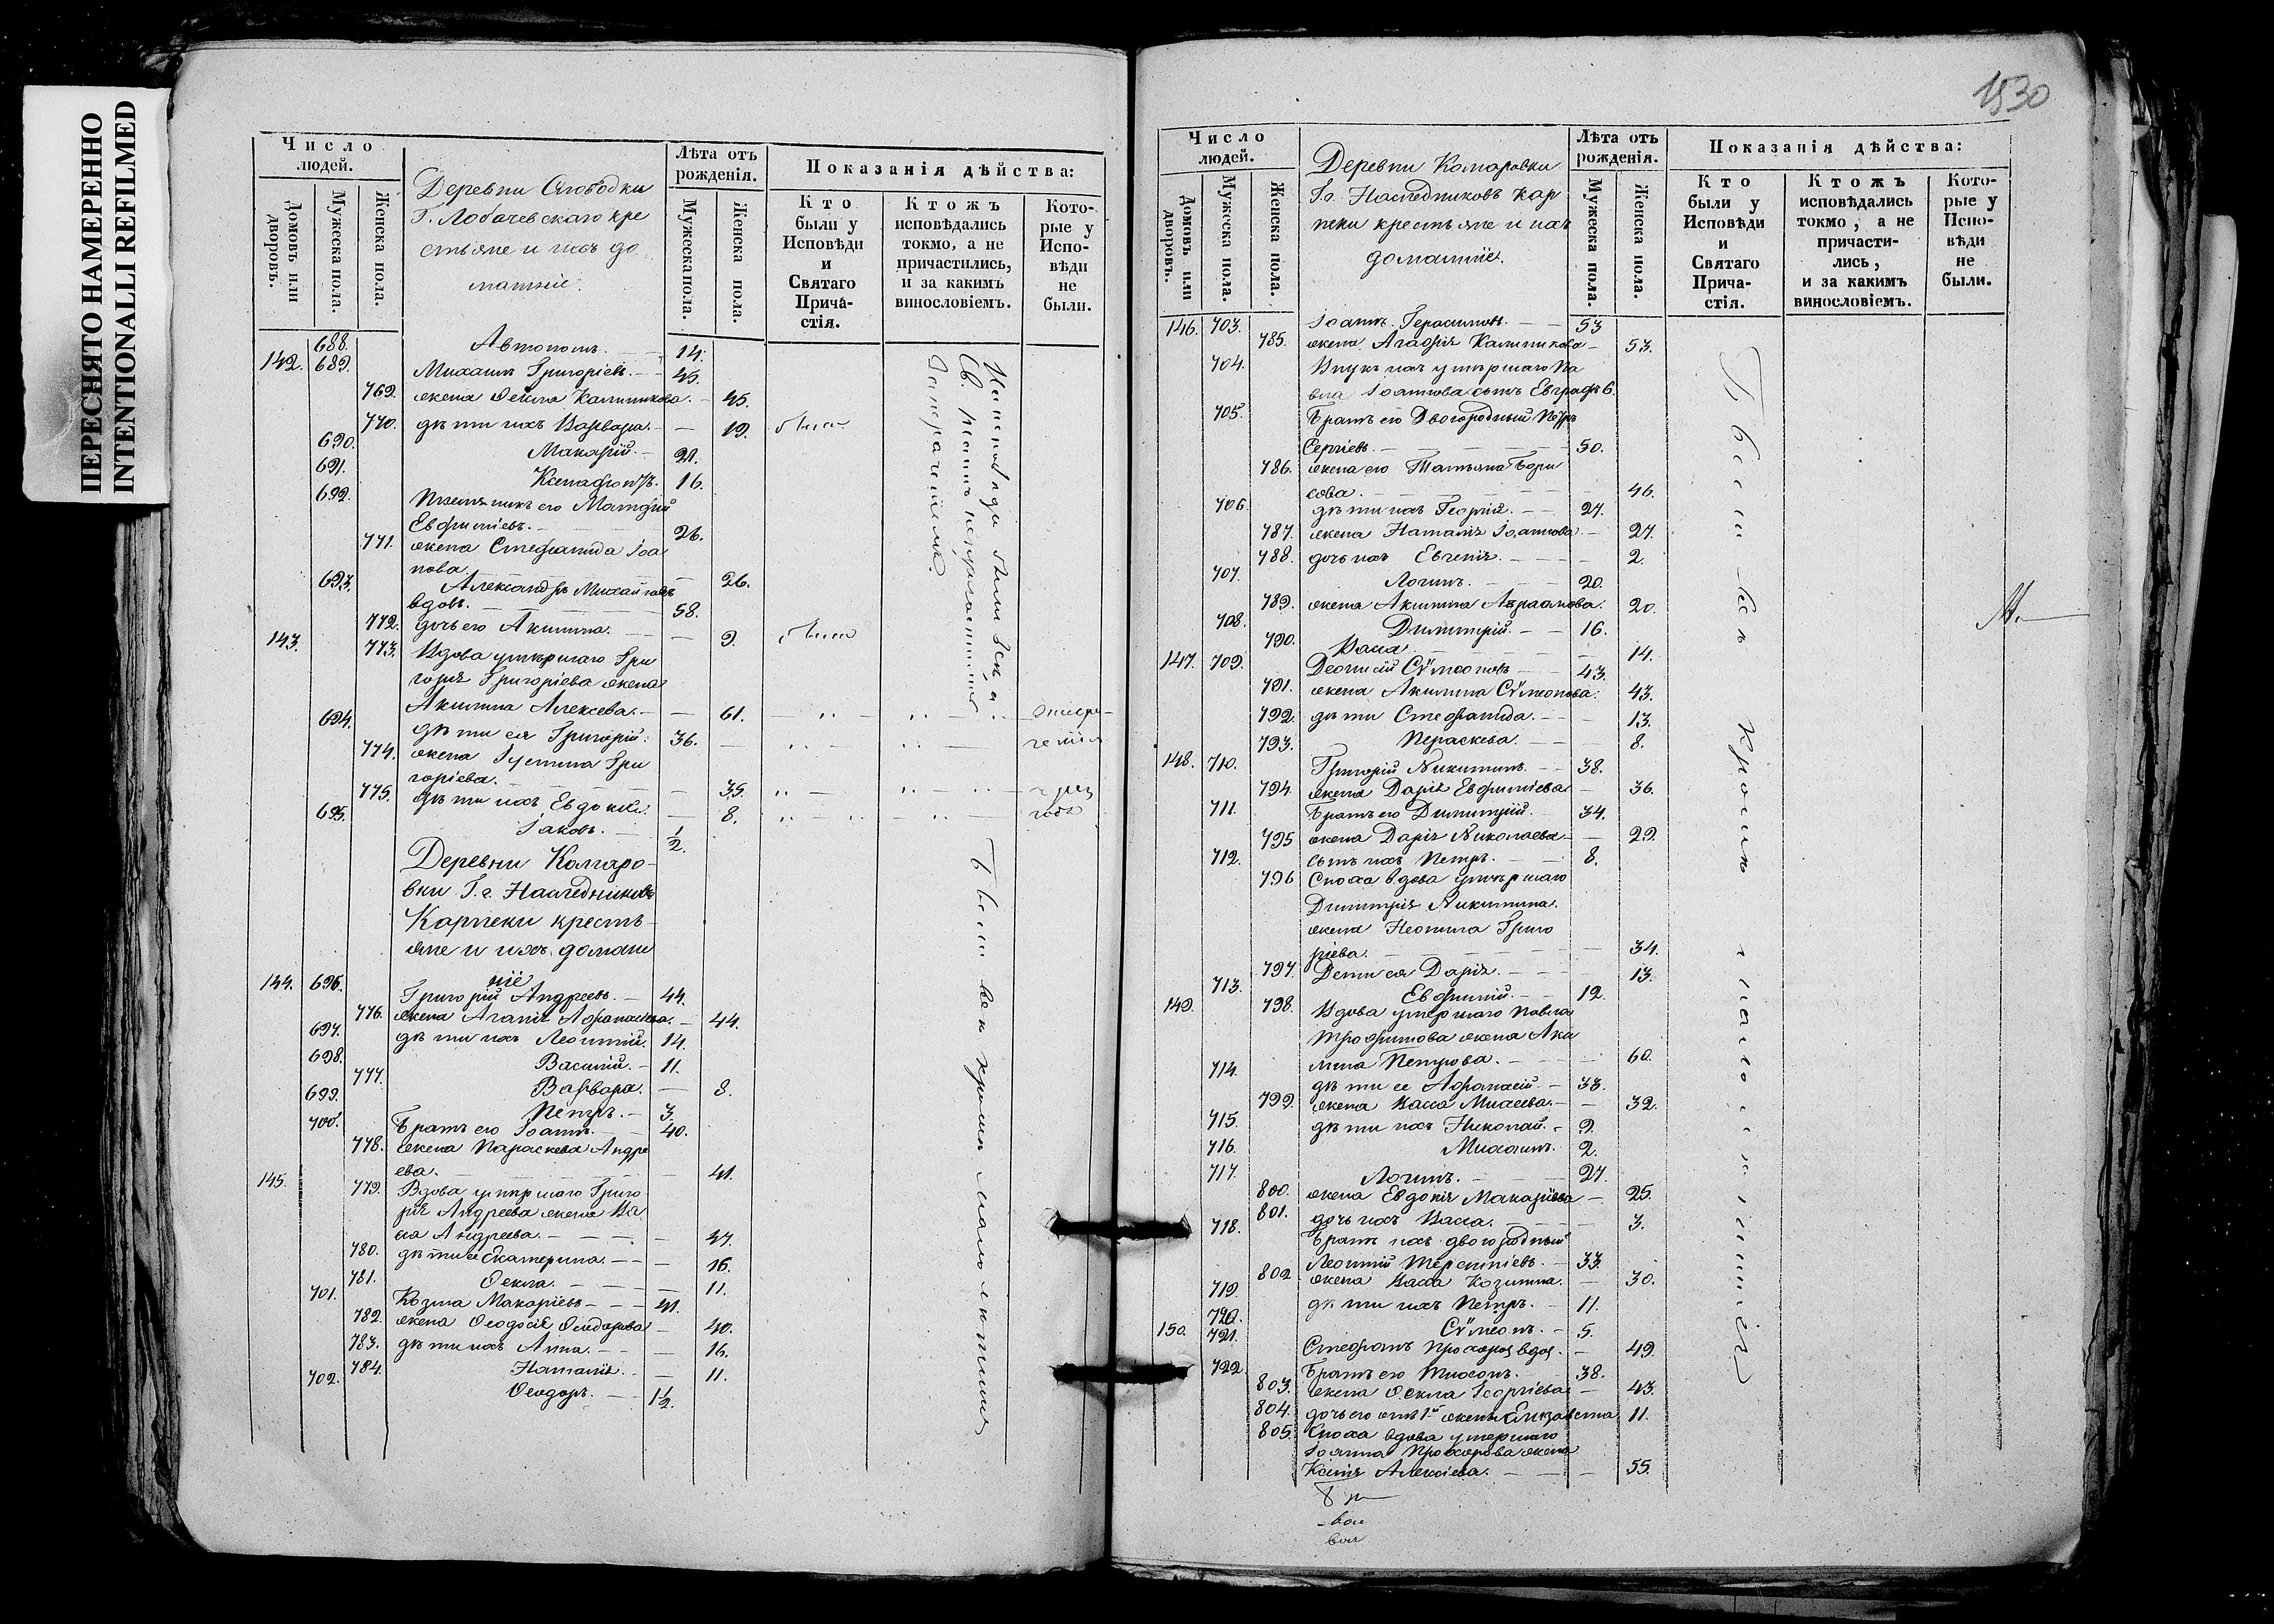 ПЕРЕСНЯТО НАМЕРЕННО
INTENTIONALLI REFILMED
Число людей.
Домовъ или дворовъ.
Мужеска пола.
Женска пола.
Деревни Слободки
Г. Лобачевскаго кре
стьяне и ихъ до
машніе.
Лѣта отъ рожденія.
Мужеска пола.
Женска пола.
Показанія дѣйства:
Кто были у Исповѣди и Святаго Прича-стія.
Ктожъ исповѣдались токмо, а не причастились, и за какимъ винословіемъ.
Кото-рые у Испо-вѣди не были.
688. Автономъ. 14.
142. 689. Михаилъ Григоріевъ. 45.
769. жена Ѳекла Калиникова. 45.
770. дѣти ихъ Варвара. 19.
690. Макарій. 21.
691. Ксенафонтъ. 16.
692. Племяникъ его Матфій
Евфиміевъ. 26.
771. жена Стефанида Іоа
нова. 26.
693. Александръ Михайловъ
вдовъ. 58.
772. дочь его Акилина. 9.
143. 773. Вдова умершаго Гри
горія Григоріева жена
Акилина Алексева. 61.
694. дѣти ея Григорій. 36.
774. жена Іустина Гри
горіева. 35.
775. дѣти ихъ Евдокія. 8.
695. Іаковъ. 1/2.
Деревни Комаро-
вки Г.г. Наследниковъ
Карпеки кресть-
яне и ихъ домаш
ніе
144. 696. Григорій Андреевъ. 44.
776. жена Агапія Афанасіева. 44.
697. дѣти ихъ Леонтій. 14.
698. Василій. 11.
777. Варвара. 8.
699. Петръ. 3.
700. Братъ его Іоаннъ. 40.
778. жена Параскева Андре
ева. 41.
145. 779. Вдова умершаго Григо
рія Андреева жена Ва
са Андреева. 47.
780. дѣти ее Екатерина. 16.
781. Ѳекла. 11.
701. Козма Макаріевъ. 41.
782. жена Ѳеодосія Ѳеодорова 40.
783. дѣти ихъ Анна. 16.
784. Наталія. 11.
702. Ѳеодоръ. 1 1/2.
Были всѣ кромѣ малолѣтнихъ
1530
Число людей.
Домовъ или дворовъ.
Мужеска пола.
Женска пола.
Деревни Комаровки
Г.г. Наследниковъ Кар
пеки крестьяне и ихъ
домашніе.
Лѣта отъ рожденія.
Мужеска пола.
Женска пола.
Показанія дѣйства:
Кто были у Исповѣди и Святаго Прича-стія.
Ктожъ исповѣдались токмо, а не причасти-лись, и за какимъ винословіемъ.
Кото-рые у Испо-вѣди не были.
146. 703. Іоаннъ Герасимовъ. 53
785. жена Агафія Калиникова 53.
704. Внукъ ихъ умершаго Па
вла Іоаннова сынъ Евграфъ 6.
705. Братъ его Двоюродный Петръ
Сергіевъ. 50.
786. жена его Татьяна Бори
сова. 46.
706. дѣти ихъ Георгій. 27.
787. жена Наталія Іоаннова 27.
788. дочь ихъ Евгенія. 2.
707. Логинъ. 20.
789. жена Акилина Авраамова. 20.
708. Димитрій. 16.
790. Васса 14.
147. 709. Деонисій Сѵмеоновъ 43.
791. жена Акилина Сѵмеонова. 43.
792. дѣти Стефанида. 13.
793. Параскева. 8.
148. 710. Григорій Никитинъ. 38.
794. жена Дарія Евфиміева 36.
711. Братъ его Димитрій. 34.
795 жена Дарія Николаева 29.
712. сынъ ихъ Петръ. 8.
796 Сноха вдова умершаго
Димитрія Никитина.
жена Неонила Григо
ріева. 34.
797. Дети ея Дарія. 13.
713. Евфимій. 12.
149. 798. Вдова умершаго Павла
Трофимова жена Аки
лина Петрова. 60.
714. дѣти ее Афанасій. 33.
799. жена Васса Михеева. 32.
715. дѣти ихъ Николай. 9.
716. Михаилъ. 2.
717. Логинъ. 27.
800. жена Евдокія Макаріева 25.
801. дочь ихъ Васса. 3.
718. Братъ ихъ двоюродный
Леонтій Терентіевъ. 33.
802 жена Васса Козмина. 30.
719. дѣти ихъ Петръ. 11.
720. Сѵмеонъ. 5.
150. 721. Стефанъ Прохоровъ вдов. 49
722 Братъ его Тихонъ. 38.
803. жена Ѳекла Георгіева 43.
804. дочь его отъ 1й жены Елизавета 11.
805. Сноха вдова умершаго
Іоанна Прохорова жена
Ксенія Алексіева. 55.
Были всѣ кромѣ малолѣтнихъ